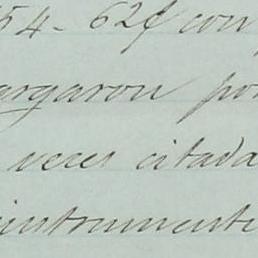 54- 62f con
argaron por
veces citada
instrumento